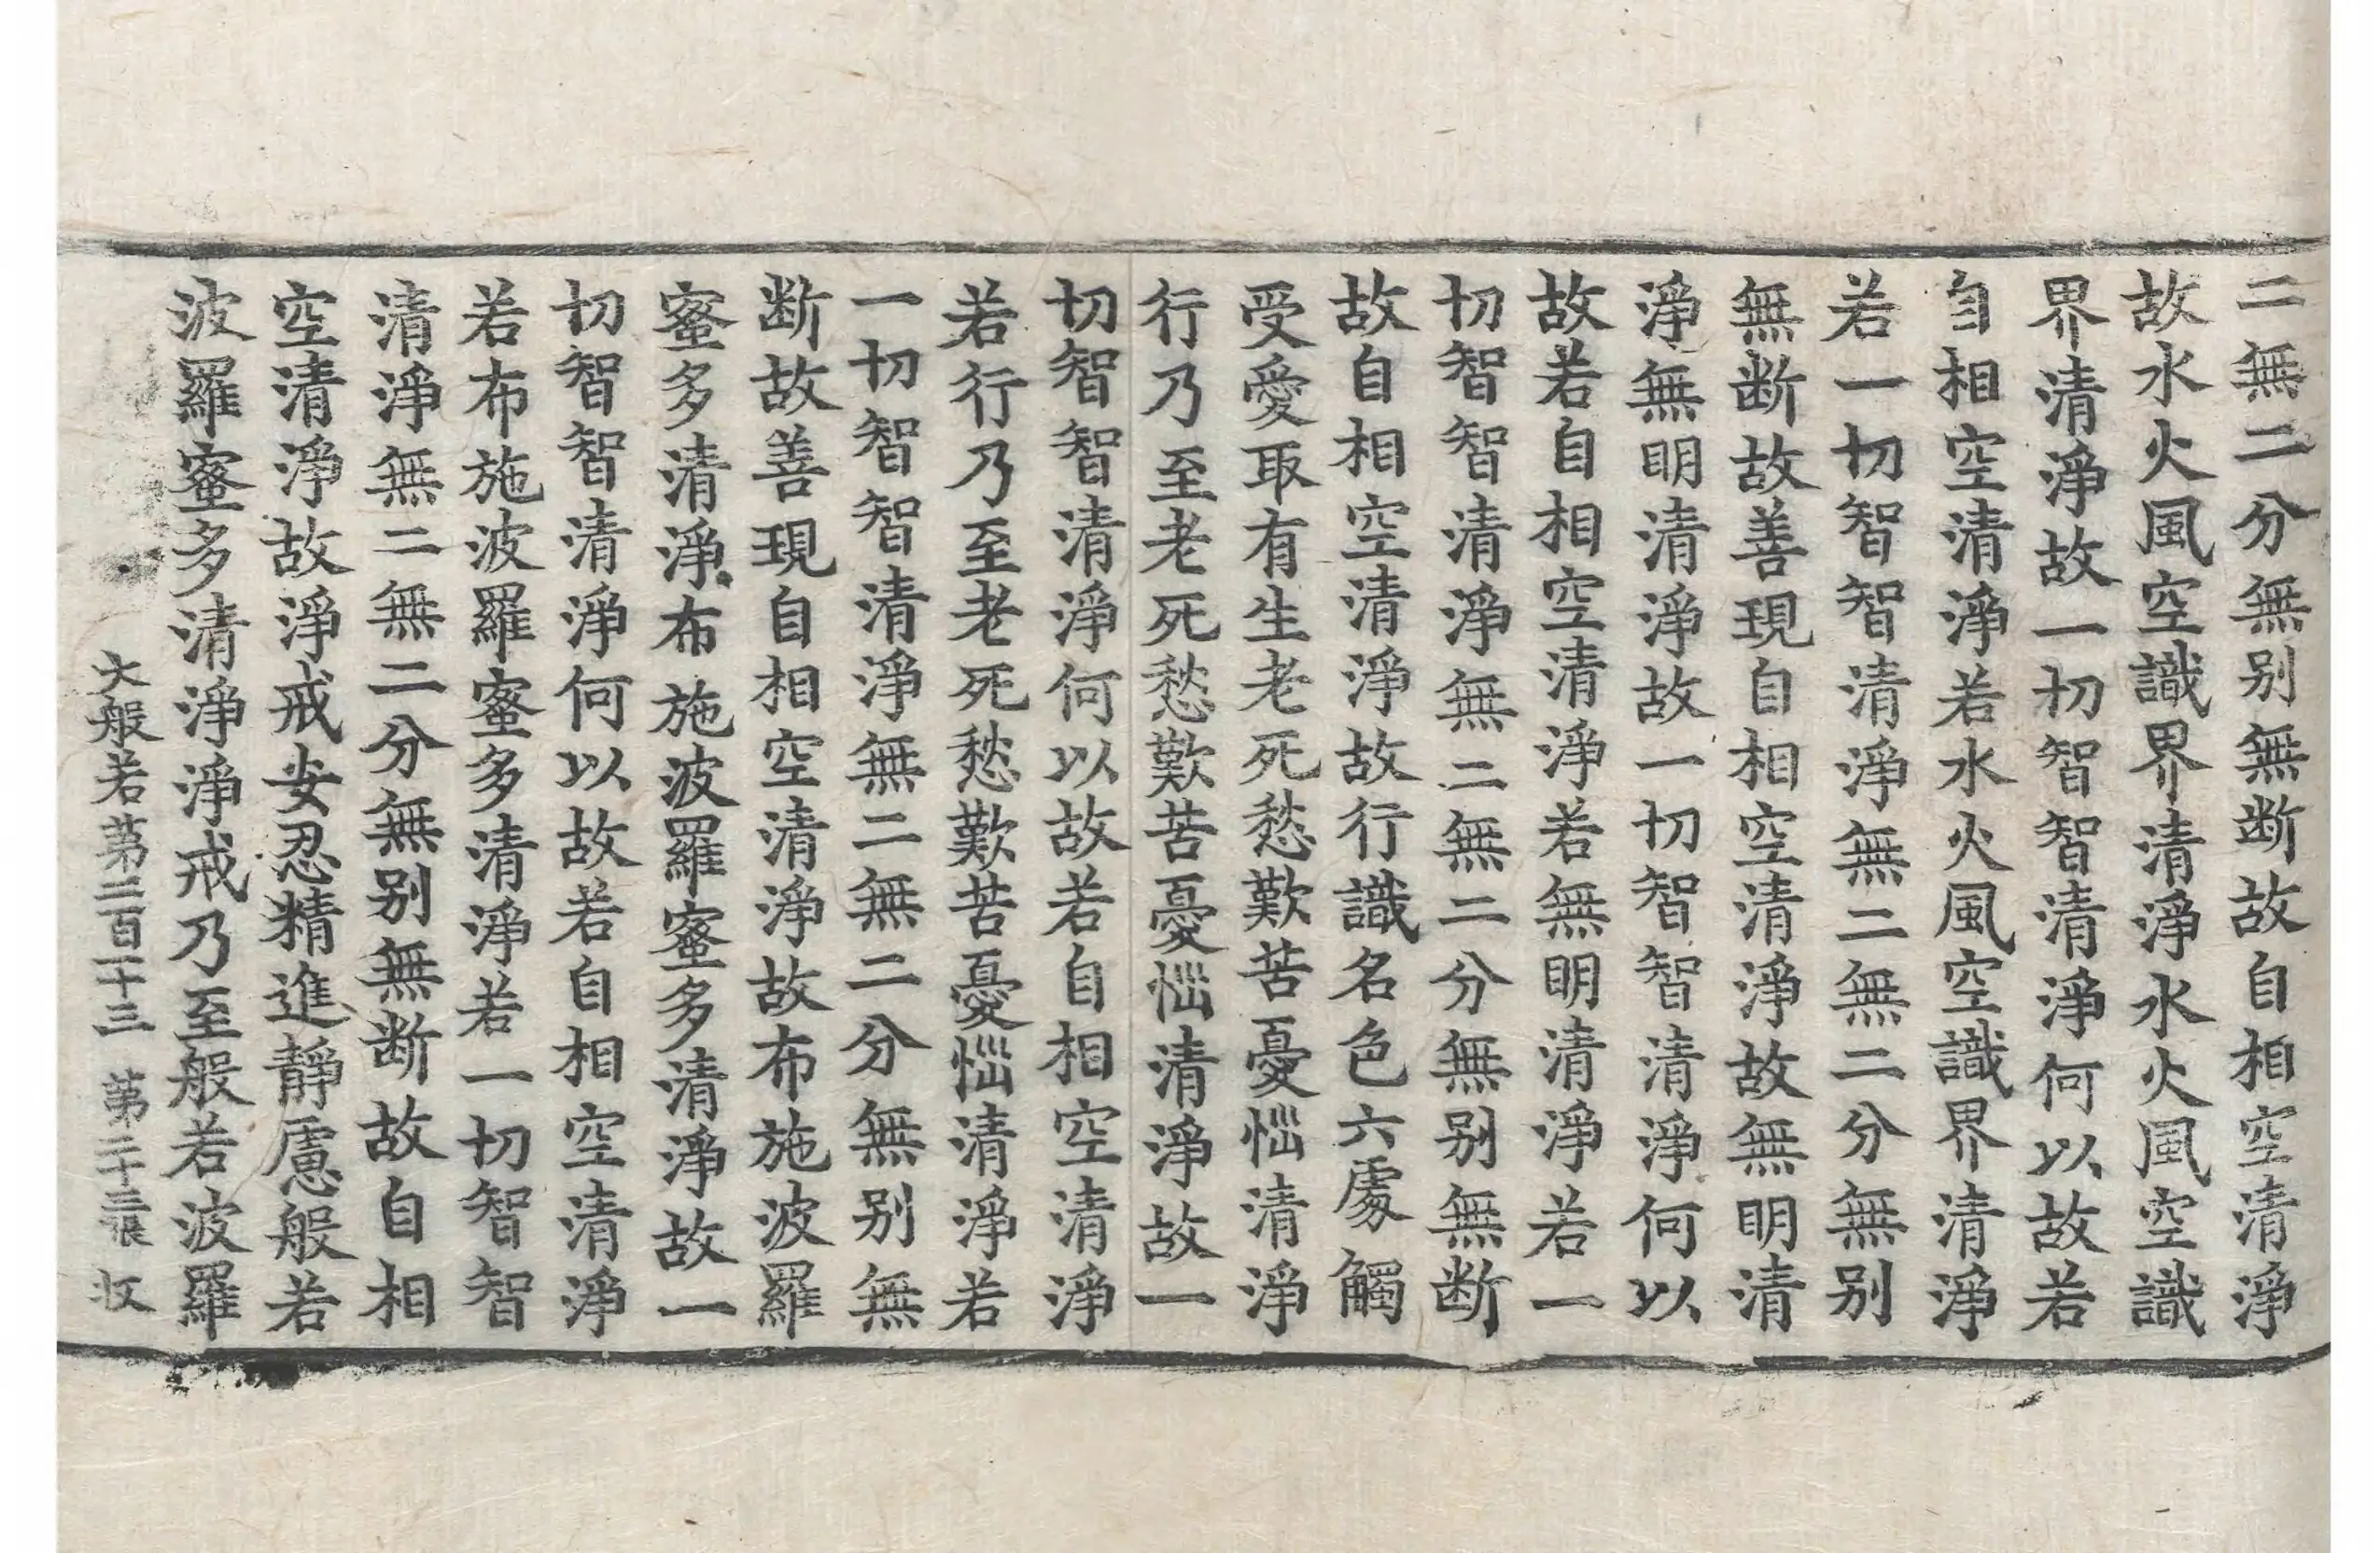 二無二分無别無断故自相空清淨
故水火風空識界清淨水火風空識
界清淨故一切智智清淨何以故若
自相空清淨若水火風空識界清淨
若一切智智清淨無二無二分無别
無断故善現自相空清淨故無明清
淨無明清淨故一切智智清淨何以
故若自相空清淨若無明清淨若一
切智智清淨無二無二分無别無断
故自相空清淨故行識名色六處觸
受愛取有生老死愁歎苦憂惱清淨
行乃至老死愁歎苦憂惱清淨故一
切智智清淨何以故若自相空清淨
若行乃至老死愁歎苦憂惱清淨若
一切智智清淨無二無二分無别無
断故善現自相空清淨故布施波羅
蜜多清淨布施波羅蜜多清淨故一
切智智清淨何以故若自相空清淨
若布施波羅蜜多清淨若一切智智
清淨無二無二分無别無断故自相
空清淨故淨戒安忍精進靜慮般若
波羅蜜多清淨淨戒乃至般若波羅
大般若第二百二十三 第二十三張